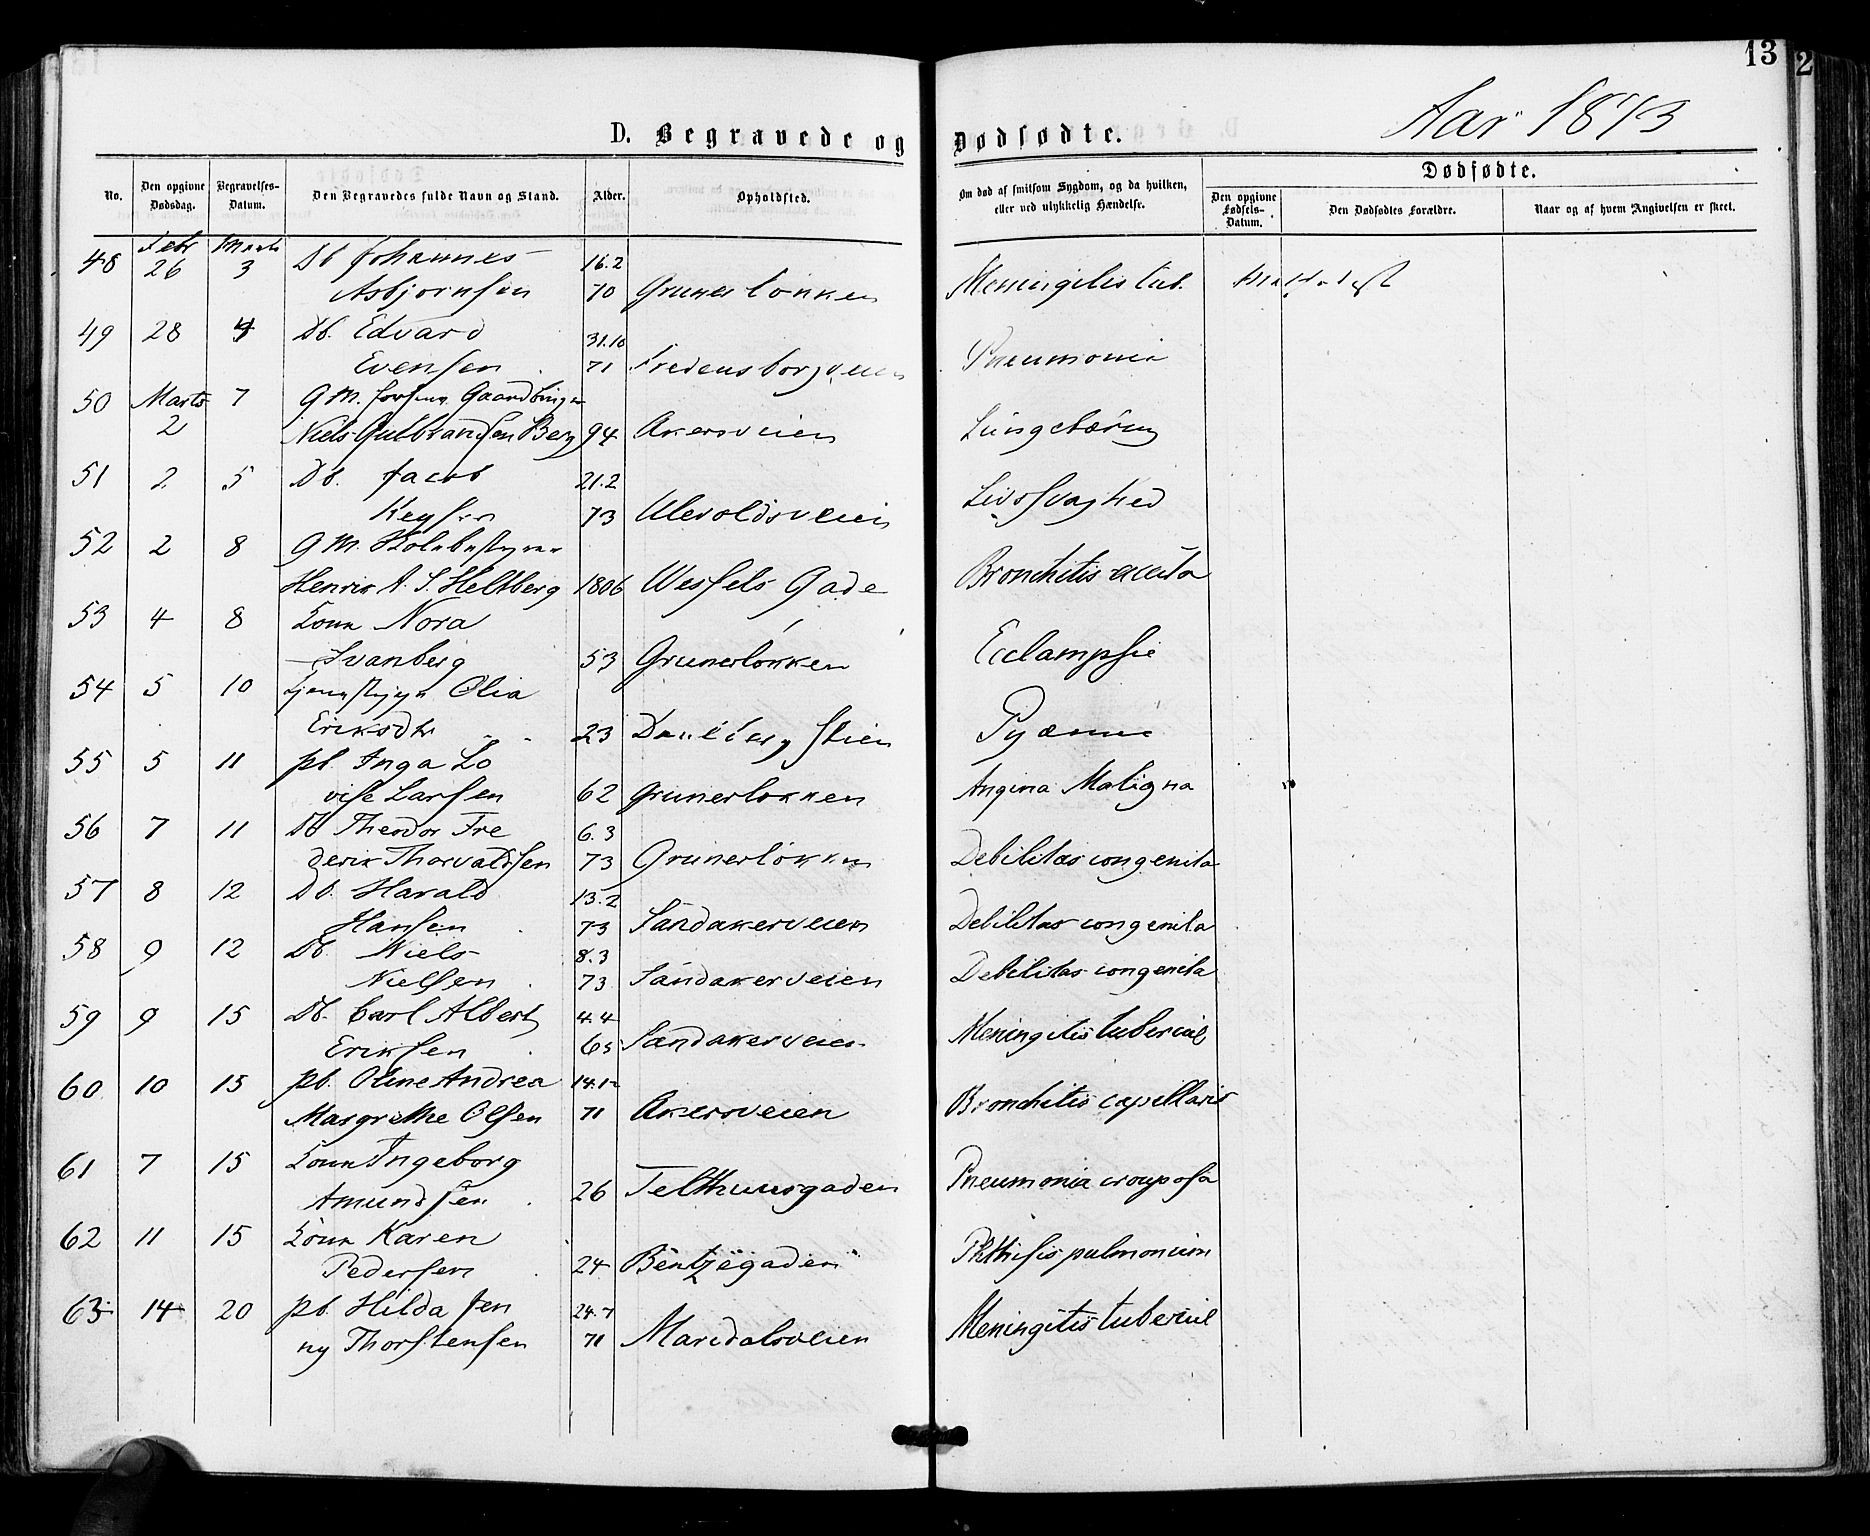 13
2
Aar 1873
D. Begravede og Dødsødte.
No.
Den opgivne Dødsdag.
Begravelses-Datum.
Den Begravedes fulde Navn og Stand.
Alder.
Opholdsted.
Om død af smitsom Sygdom, og da hvilken, eller ved ulykkelig Hændelse.
Dødfødte.
Den opgivne Fødsels-Datum.
Den Dødfødtes Forældre.
Naar og af hvem Angivelsen er skeet.
Febr Marts
48 26 3 Db Johannes 16.2
Asbjørnsen 70 Grünerløkken Meningitis tub.
49 28 4 Db. Edvard 31.10
Evensen 71 Fredensborgveien Pneumonia
50 Marts 7 G M. Gaardbruger
2 Niels Gulbrandsen Berg 94 Akersveien Lungetæring
51 2 5 Db. Jacob 21.2
Keyser 73 Ulevoldsveien Livssvaghed
52 2 8 G M. Skolebestyrer
Henrik A. S. Heltberg 1806 Wessels Gade Bronchitis acuta
53 4 8 Kone Nora
Svanberg 53 Grünerløkken Eclampsie
54 5 10 Tjenestepige Olia
Eriksdtr 23 Pyæmie
55 5 11 pb. Inga Lo
vise Larsen 62 Grünerløkken Angina Maligna
56 7 11 Db Theodor Fre 6.3
derik Thorvaldsen 73 Grünerløkken Debilitas congenita
57 8 12 Db. Harald 13.2
Hansen 73 Sandakerveien Debilitas congenita
58 9 12 Db. Niels 8.3
Nielsen 73 Sandakerveien Debilitas congenita
59 9 15 Db. Carl Albert 4.4
Eriksen 65 Sandakerveien Meningitis tubercul
60 10 15 pb. Oline Andrea 14.12
Margrethe Olsen 71 Akersveien Bronchitis capillaris
61 7 15 Kone Ingeborg
Amundsen 26 Telthusgaden Pneumonia crouposa
62 11 15 Kone Karen
Pedersen 24 Bentzegaden Phthisis pulmonum
63 14 20 pb. Hilda Jen 24.7
ny Thorstensen 71 Maridalsveien Meningitis tubercul